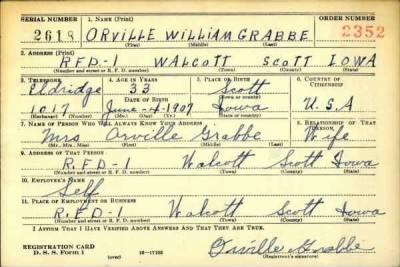 SERIAL NUMBER 1. NAME (Print) ORDER NUMBER
2618 ORVILLE WILLIAM GRABBE 2352
(First) (Middle) (Last)
2. ADDRESS (Print)
R.F.D.-1 WALCOTT SCOTT IOWA
(Number and street or R. F. D. number) (Town) (County) (State)
3. TELEPHONE 4. AGE IN YEARS 5. PLACE OF BIRTH 6. COUNTRY OF CITIZENSHIP
Eldridge 33 Scott
DATE OF BIRTH (Town or county)
1017 June-4-1907 Iowa U.S.A
(Exchange) (Number) (Mo.) (Day) (Yr.) (State or country)
7. NAME OF PERSON WHO WILL ALWAYS KNOW YOUR ADDRESS 8. RELATIONSHIP OF THAT PERSON
Mrs Orville Grabbe Wife
(Mr., Mrs., Miss) (First) (Middle) (Last)
9. ADDRESS OF THAT PERSON
R.F.D-1 Walcott Scott Iowa
(Number and street or R. F. D. number) (Town) (County) (State)
10. EMPLOYER'S NAME
Self
11. PLACE OF EMPLOYMENT OR BUSINESS
R.F.D-1 Walcott Scott Iowa
(Number and street or R. F. D. number) (Town) (County) (State)
I AFFIRM THAT I HAVE VERIFIED ABOVE ANSWERS AND THAT THEY ARE TRUE.
REGISTRATION CARD
D. S. S. Form 1 (over) 16-17105 Orville Grabbe
(Registrant's signature)